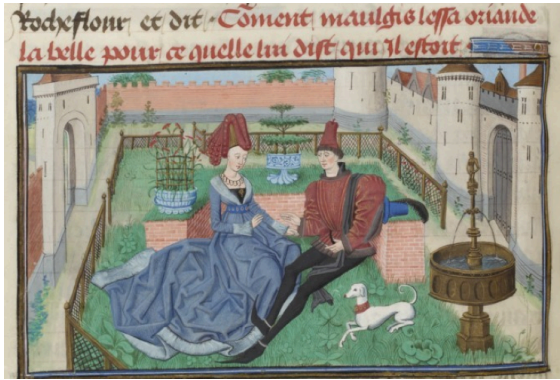 Rocheflour et dit · Coment maulgis lessa oriande
la belle pour ce quelle lui dist qui il estoit